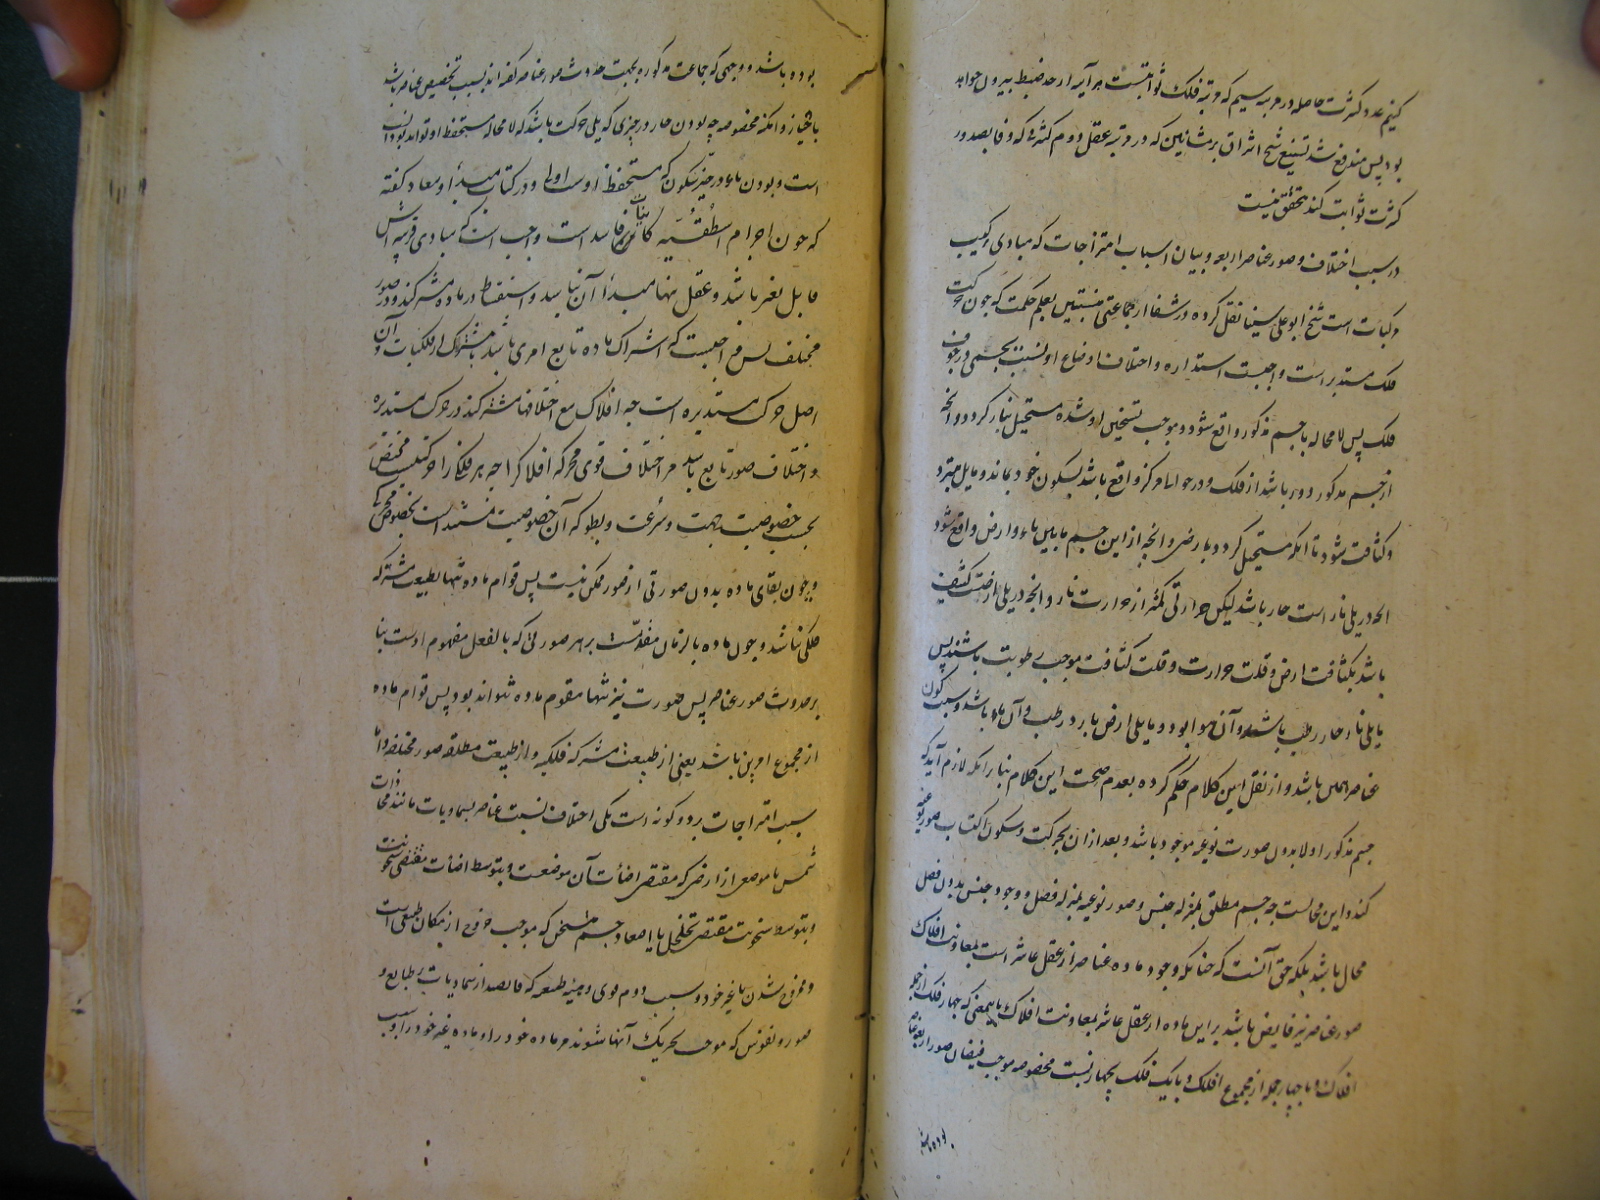 کنیم عدد کثرت حاصله در مرتبه سیم که مرتبه فلک ثوابتست هر آینه از حد ضبط بیرون خواهد
بود پس مندفع شد تشنیع شیخ اشراق بر مشائین که در مرتبه عقل دوم کثرتی که وفا بصدور
کثرت ثوابت کند متحقق نیست
در سبب اختلاف صور عناصر اربعه و بیان اسباب امتزاجات که مبادی ترکیب
مرکبات است شیخ ابو علی سینا نقل کرده در شفا از جماعتی منتسبین بعلم حکمت که چون حرکت
فلک مستدیر است و واجبست استداره و اختلاف اوضاع او نسبت بجسمی در جوف
فلک پس لا محاله با جسم مذکور واقع شود و موجب تسخین او شده مستحیل بنار گردد و آنچه
از جسم مذکور دور باشد از فلک و در حوالی مرکز واقع باشد بسکون خود بماند و مایل بتبرد
و کثافت شود تا آنکه مستحیل گردد بارض و آنچه از این جسم مابین نار و ارض واقع شود
آنچه در یلی نار است حار باشد لیکن حرارتی کمتر از حرارت نار و آنچه در یلی ارض است کثیف
باشد بکثافت ارض و قلت حرارت و قلت کثافت موجب رطوبت باشند پس
یا یلی نار حار رطب باشد و آن هوا بود و ما یلی ارض بارد رطب و آن ماء باشد و سبب کون
عناصر همین باشد و از نقل این کلام حکم کرده بعدم صحت این کلام بنابر آنکه لازم آید که
جسم مذکور اولا بدون صورت نوعیه موجود باشد و بعد از آن بحرکت و سکون اکتساب صور نوعیه
کند و این محالست چه جسم مطلق بمنزله جنس و صور نوعیه بمنزله فصل و وجود جنس بدون فصل
محال باشد بلکه حق آنست که چنانکه وجود ماده عناصر از عقل عاشر است بمعاونت افلاک
صور عناصر نیز فایض باشد بر این ماده از عقل عاشر بمعاونت افلاک باین معنی که چهار فلک از جمله
افلاک و یا چهار جمله از مجموع افلاک و یا یک فلک بچهار نسبت مخصوصه موجب فیضان صور اربعه عناصر
بوده باشد
بوده باشد و وجهی که جماعت مذکوره بجهت حدوث صور عناصر گفته‌اند بسبب تخصیص عناصر باشد
باحیاز و امکنه مخصوصه چه بودن حار در حیزی که یلی حرکت باشد که لا محاله مستحفظ او تواند بود انسب
است و بودن بارد در حیز سکون که مستحفظ اوست اولی و در کتاب مبدأ و معاد گفته
که چون اجرام اسطقسیه کاینات فاسد است واجب است که مبادی قریبه اش
قابل تغیر باشد و عقل تنها مبدأ آن نباشد و اسطقسات در ماده مشترکند و در صور
مختلف پس واجبست که اشتراک ماده تابع امری باشد مشترک از فلکیات و آن
اصل حرکت مستدیره است چه افلاک مع اختلافها مشترکند در حرکت مستدیره
و اختلاف صور تابع باشد مر اختلاف قوی محرکه افلاک را چه هر فلک را حرکتیست مختص
بحسب خصوصیت جهت و سرعت و بطو که آن خصوصیت مستند است بخصوص محرک
و چون بقای ماده بدون صورتی از صور ممکن نیست پس قوام ماده تنها بطبیعت مشترکه
فلکی نباشد و چون ماده بالزمان مقدمست بر هر صورتی که بالفعل مقوم اوست بنا
بر حدوث صور عناصر پس صورت نیز تنها مقوم ماده نتواند بود پس قوام ماده
از مجموع امرین باشد یعنی از طبیعت مشترکه فلکیه و از طبیعت مطلقه صور مختلفه و اما
سبب امتزاجات بر دو گونه است یکی اختلاف نسبت عناصر بسماویات مانند محاذات
شمس با موضعی از ارض که مقتضی اضائت آن موضعست و بتوسط اضائت مقتضی سخونت
و بتوسط سخونت مقتضی تخلخل یا اصعاد جسم متسخن که موجب خروج از مکان طبیعی است
و ممزوج شدن با غیر خود و سبب دوم قوی و هیئه طبیعیه که فایضند از سماویات بر طبایع و
صور و نفوس که موجب تحریک آنها شوند مر ماده خود را و ماده غیر خود را و سبب